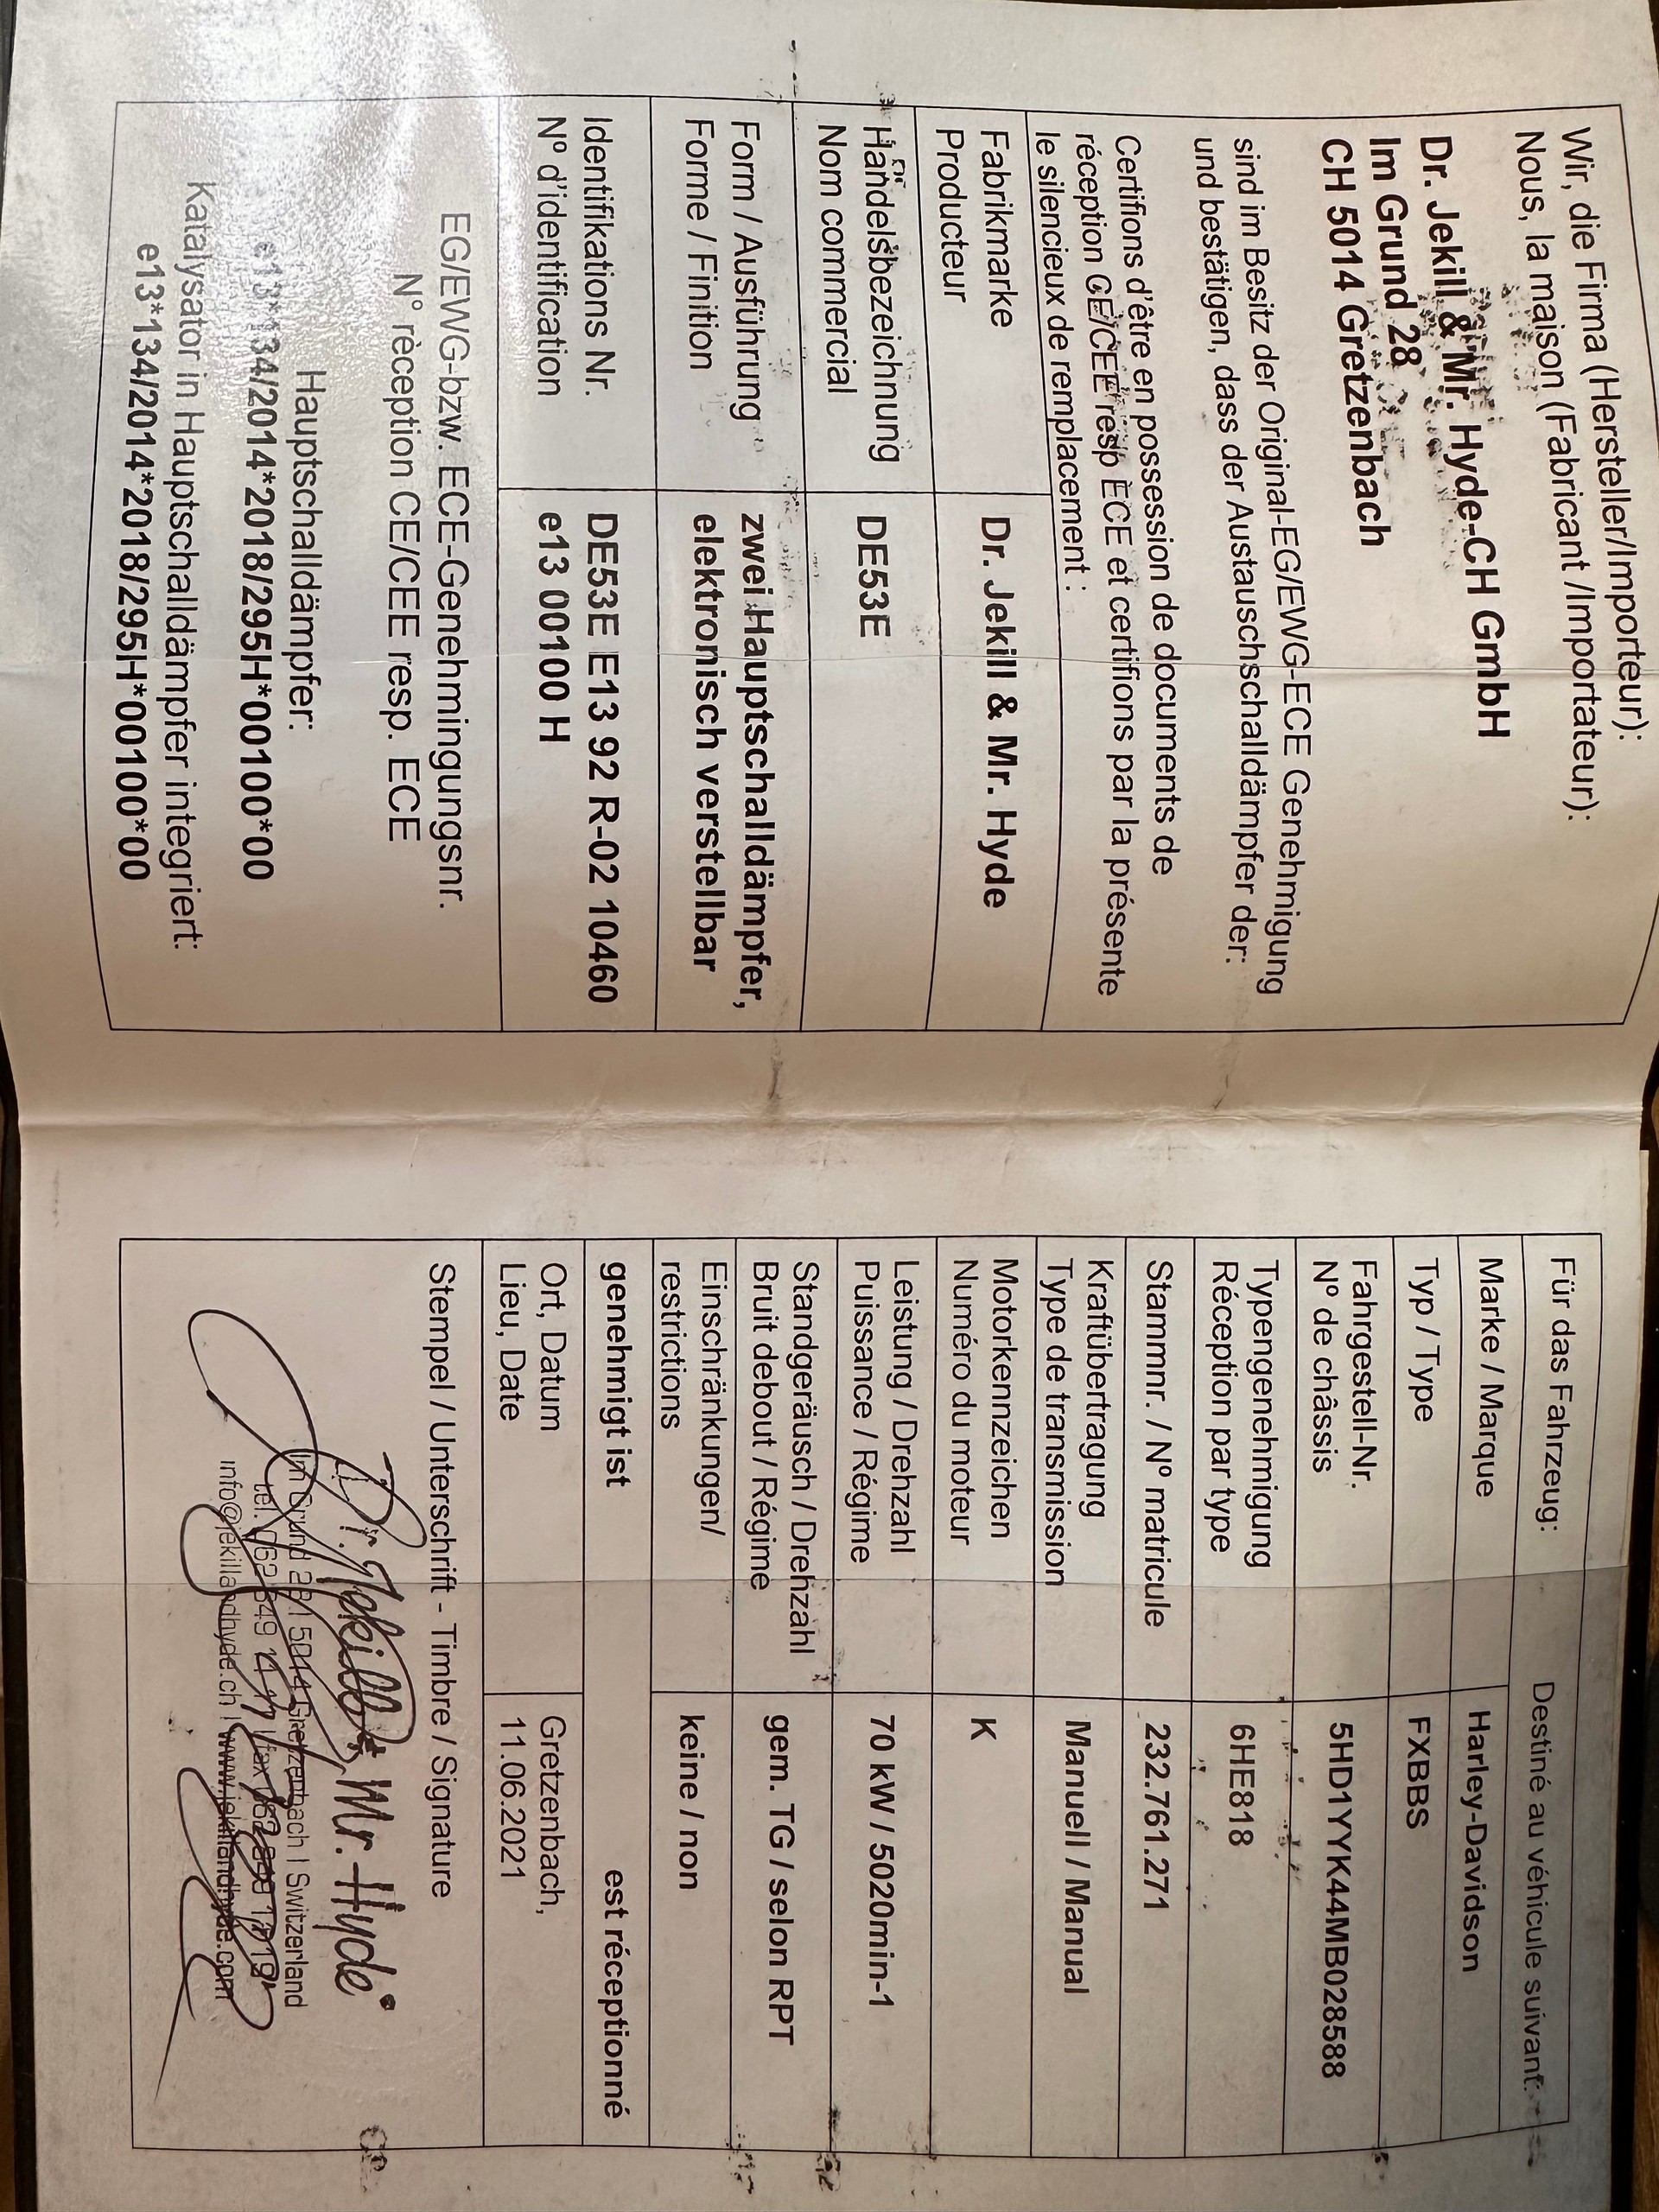 Wir, die Firma (Hersteller/Importeur):
Nous, la maison (Fabricant /Importateur):
Dr. Jekill & Mr. Hyde-CH GmbH
Im Grund 28
CH 5014 Gretzenbach
sind im Besitz der Original-EG/EWG-ECE Genehmigung
und bestätigen, dass der Austauschschalldämpfer der:
Certifions d'être en possession de documents de
réception CE/CEE resp ECE et certifions par la présente
le silencieux de remplacement :
Fabrikmarke Dr. Jekill & Mr. Hyde
Producteur
Handelsbezeichnung DE53E
Nom commercial
Form / Ausführung zwei Hauptschalldämpfer,
Forme / Finition elektronisch verstellbar
Identifikations Nr. DE53E E13 92 R-02 10460
N° d'identification e13 00100 H
EG/EWG-bzw. ECE-Genehmingungsnr.
N° rèception CE/CEE resp. ECE
Hauptschalldämpfer:
e13*134/2014*2018/295H*00100*00
Katalysator in Hauptschalldämpfer integriert:
e13*134/2014*2018/295H*00100*00
Für das Fahrzeug: Destiné au véhicule suivant:
Marke / Marque Harley-Davidson
Typ / Type FXBBS
Fahrgestell-Nr. 5HD1YYK44MB028588
N° de châssis
Typengenehmigung 6HE818
Réception par type
Stammnr. / N° matricule 232.761.271
Kraftübertragung Manuell / Manual
Type de transmission
Motorkennzeichen K
Numéro du moteur
Leistung / Drehzahl 70 kW / 5020min-1
Puissance / Régime
Standgeräusch / Drehzahl gem. TG / selon RPT
Bruit debout / Régime
Einschränkungen/ keine / non
restrictions
genehmigt ist est réceptionné
Ort, Datum Gretzenbach,
Lieu, Date 11.06.2021
Stempel / Unterschrift - Timbre / Signature
Dr. Jekill & Mr. Hyde
Im Grund 28 I 5014 Gretzenbach I Switzerland
tel. 062 849
info@jekillandhyde.ch I www.jekillandhyde.com